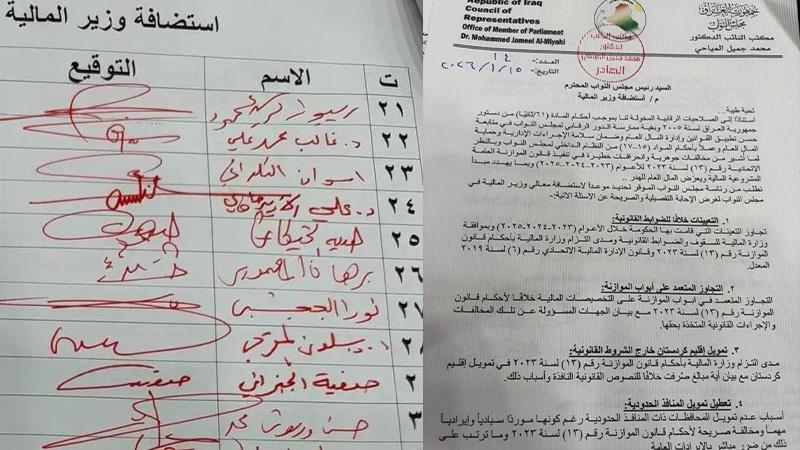 استضافة وزير المالية
ت الاسم التوقيع
٢١
٢٢ د. غالب محمد علي
٢٣ اسوان
٢٤ د. علي
٢٥
٢٦ برهان
٢٧ نورا
٢٨
٢ صفية
٣ حسن
Republic of Iraq
Council of
Representatives
Office of Member of Parliament
Dr. Mohammed Jameel Al-Miyahi
جمهورية العراق
مجلس النواب
مكتب النائب الدكتور
محمد جميل المياحي
مكتب النائب
الدكتور
محمد جميل المياحي
الصادر
العدد: ١٤
التاريخ: ٢٠٢٦/١/١٥
السيد رئيس مجلس النواب المحترم
م / استضافة وزير المالية
تحية طيبة..
استنادًا إلى الصلاحيات الرقابية المخولة لنا بموجب أحكام المادة (٦١/ثانيًا) من دستور
جمهورية العراق لسنة ٢٠٠٥ وبغية ممارسة الدور الرقابي لمجلس النواب في متابعة
حسن تطبيق القوانين وإدارة المال العام وضمان سلامة الإجراءات الإدارية وحماية
المال العام وعملًا بأحكام المواد (١٥-١٧) من النظام الداخلي لمجلس النواب وبالنظر
لما أشير من مخالفات جوهرية وانحرافات خطيرة في تنفيذ قانون الموازنة العامة
الاتحادية رقم (١٣) لسنة ٢٠٢٣ للأعوام (٢٠٢٣-٢٠٢٤-٢٠٢٥) وبما يهدد مبدأ
المشروعية المالية ويعرّض المال العام للهدر..
نطلب من رئاسة مجلس النواب الموقر تحديد موعدًا لاستضافة معالي وزير المالية في
مجلس النواب لغرض الإجابة التفصيلية والصريحة عن الأسئلة الآتية:
١. التعيينات خلافًا للضوابط القانونية:
تجاوز التعينات التي قامت بها الحكومة خلال الأعوام (٢٠٢٣-٢٠٢٤-٢٠٢٥) وبموافقة
وزارة المالية للسقوف والضوابط القانونية ومدى التزام وزارة المالية بأحكام قانون
الموازنة رقم (١٣) لسنة ٢٠٢٣ وقانون الإدارة المالية الاتحادي رقم (٦) لسنة ٢٠١٩
المعدل.
٢. التجاوز المتعمد على أبواب الموازنة:
التجاوز المتعمد في ابواب الموازنة على التخصيصات المالية خلافًا لأحكام قانون
الموازنة رقم (١٣) لسنة ٢٠٢٣ مع بيان الجهات المسؤولة عن تلك المخالفات
والإجراءات القانونية المتخذة بحقها.
٣. تمويل إقليم كردستان خارج الشروط القانونية:
مدى التزام وزارة المالية بأحكام قانون الموازنة رقم (١٣) لسنة ٢٠٢٣ في تمويل إقليم
كردستان مع بيان أية مبالغ صرفت خلافًا للنصوص القانونية النافذة وأسباب ذلك.
٤. تعطيل تمويل المنافذ الحدودية:
أسباب عدم تمويل المحافظات ذات المنافذ الحدودية رغم كونها موردًا سياديًا وإيراديًا
مهمًا ومخالفة صريحة لأحكام قانون الموازنة رقم (١٣) لسنة ٢٠٢٣ وما ترتب على
ذلك من ضرر مباشر بالإيرادات العامة